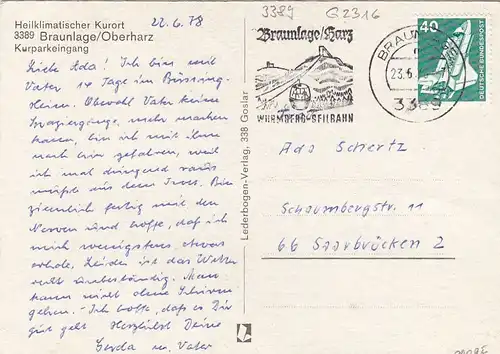 Heilklimatischer Kurort
3389 Braunlage/Oberharz
Kurparkeingang
22.6.78
Liebe Ada! Ich bin mit
Vater 14 Tage im Büssing-
Heim. Obwohl Vater keine
Spaziergänge mehr machen
kann, bin ich mit ihm
nach hier gefahren, weil
ich mal dringend raus
mußte aus dem Trott. Bin
ziemlich fertig mit den
Nerven und hoffe, daß ich
mich wenigstens etwas
erhole. Leider ist das Wetter
recht unbeständig. Man
kann nicht ohne Schirm
gehen. - Ich hoffe, daß es Dir
gut geht. Herzlichst Deine
Gerda u. Vater
Lederbogen-Verlag, 338 Goslar
3389 G2316
Braunlage/Harz
WURMBERG-SEILBAHN
BRAUNLAGE
23.6.
3389
40
DEUTSCHE BUNDESPOST
Ada Schertz
Schaumbergstr. 11
66 Saarbrücken 2